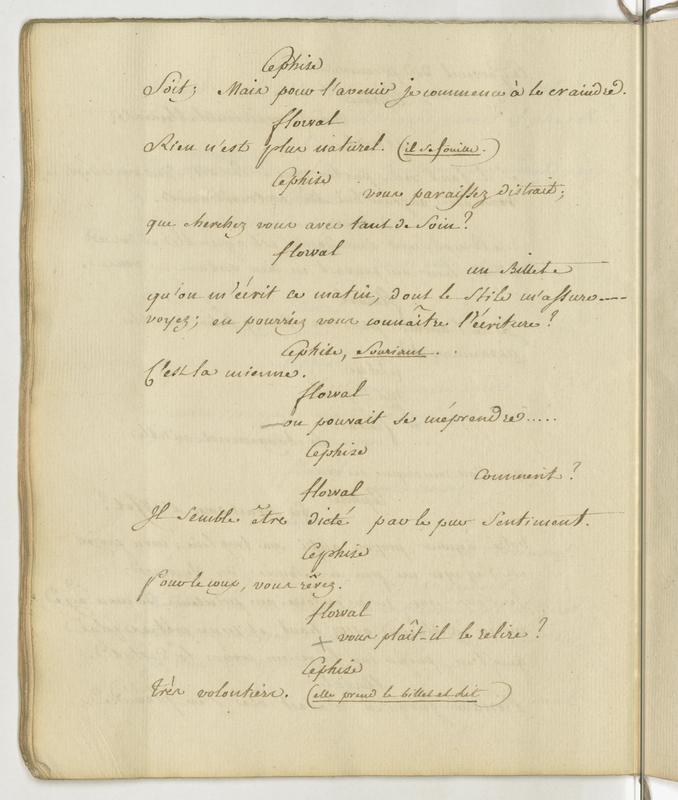 Cephise
Soit; Mais pour l'avenir je commence à le craindre.
florval
Rien n'est plus naturel. (il se fouille.)
Cephise
vous paraissez distrait;
que cherchez vous avec tant de Soin?
florval
un Billet
qu'on m'écrit ce matin, dont le Stile m'assure----
voyez; en pourriez vous connaître l'écriture?
Cephise, Souriant. .
C'est la mienne.
florval
on pouvait se méprendre.....
Cephise
Comment?
florval
Il semble être dicté par le pur Sentiment.
Cephise
Pour le coup, vous rêvez.
florval
+ vous plaît-il le relire?
Cephise
très volontiers. (elle prend le billet et dit)